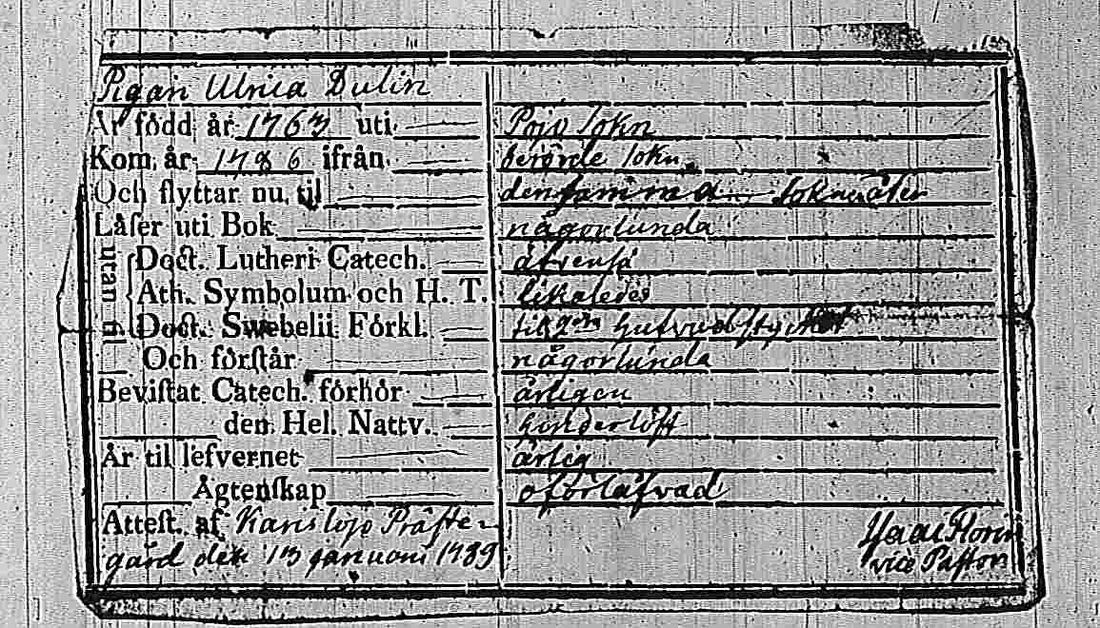 Pigan Ulrica Dulin
Är född år 1763 uti Pojo Sokn
Kom år 1786 ifrån berörde Sokn
Och flyttar nu til den samma Sokn åter
Läser uti Bok någorlunda
utan til
Doct. Lutheri Catech. äfvenså
Ath. Symbolum och H. T. likaledes
Doct. Swebelii Förkl. til 2dra hufvudstycket
Och förstår någorlunda
Bevistat Catech. förhör årligen
den Hel. Nattv.
Är til lefvernet ärlig
Ägtenskap oförlåfvad
Attest. af Karislojo Präste-
gård den 13 januari 1789
vice Pastor